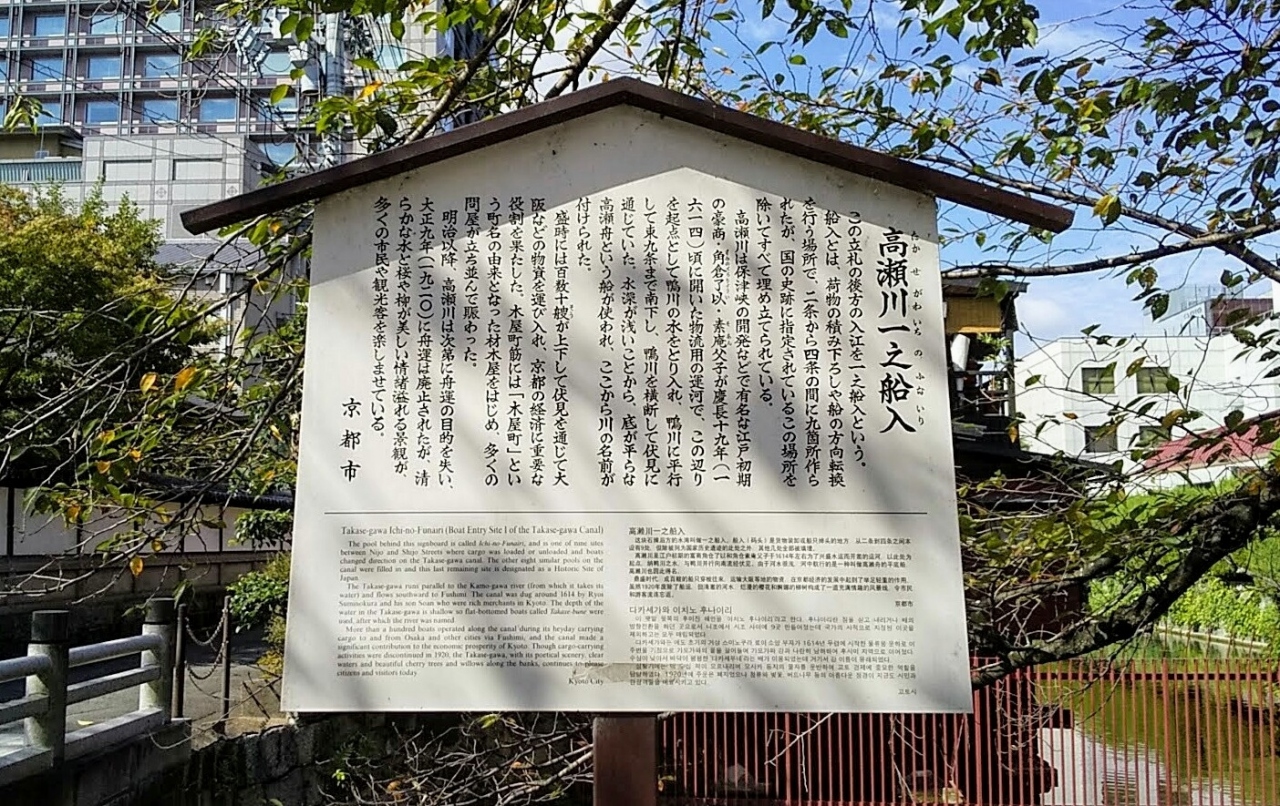 高瀬川一之船入
たかせがわいちのふないり
この立札の後方の入江を一之船入という。
船入とは、荷物の積み下ろしや船の方向転換
を行う場所で、二条から四条の間に九箇所作ら
れたが、国の史跡に指定されているこの場所を
除いてすべて埋め立てられている。
高瀬川は保津峡の開発などで有名な江戸初期
の豪商・角倉了以・素庵父子が慶長十九年(一
六一四)頃に開いた物流用の運河で、この辺り
を起点として鴨川の水をとり入れ、鴨川に平行
して東九条まで南下し、鴨川を横断して伏見に
通じていた。水深が浅いことから、底が平らな
高瀬舟という船が使われ、ここから川の名前が
付けられた。
盛時には百数十艘が上下して伏見を通じて大
阪などの物資を運び入れ、京都の経済に重要な
役割を果たした。木屋町筋には「木屋町」とい
う町名の由来となった材木屋をはじめ、多くの
問屋が立ち並んで賑わった。
明治以降、高瀬川は次第に舟運の目的を失い、
大正九年(一九二〇)に舟運は廃止されたが、清
らかな水と桜や柳が美しい情緒溢れる景観が、
多くの市民や観光客を楽しませている。
京都市
Takase-gawa Ichi-no-Funairi (Boat Entry Site 1 of the Takase-gawa Canal)
The pool behind this signboard is called Ichi-no-Funairi, and is one of nine sites
between Nijo and Shijo Streets where cargo was loaded or unloaded and boats
changed direction on the Takase-gawa canal. The other eight similar pools on the
canal were filled in and this last remaining site is designated as a Historic Site of
Japan.
The Takase-gawa runs parallel to the Kamo-gawa river (from which it takes its
water) and flows southward to Fushimi. The canal was dug around 1614 by Ryoi
Suminokura and his son Soan who were rich merchants in Kyoto. The depth of the
water in the Takase-gawa is shallow so flat-bottomed boats called Takase-bune were
used, after which the river was named.
More than a hundred boats operated along the canal during its heyday carrying
cargo to and from Osaka and other cities via Fushimi, and the canal made a
significant contribution to the economic prosperity of Kyoto. Though cargo-carrying
activities were discontinued in 1920, the Takase-gawa, with its poetical scenery, clear
waters and beautiful cherry trees and willows along the banks, continues to please
citizens and visitors today.
Kyoto City
高瀬川一之船入
京都市
다카세가와 이치노 후나이리
교토시